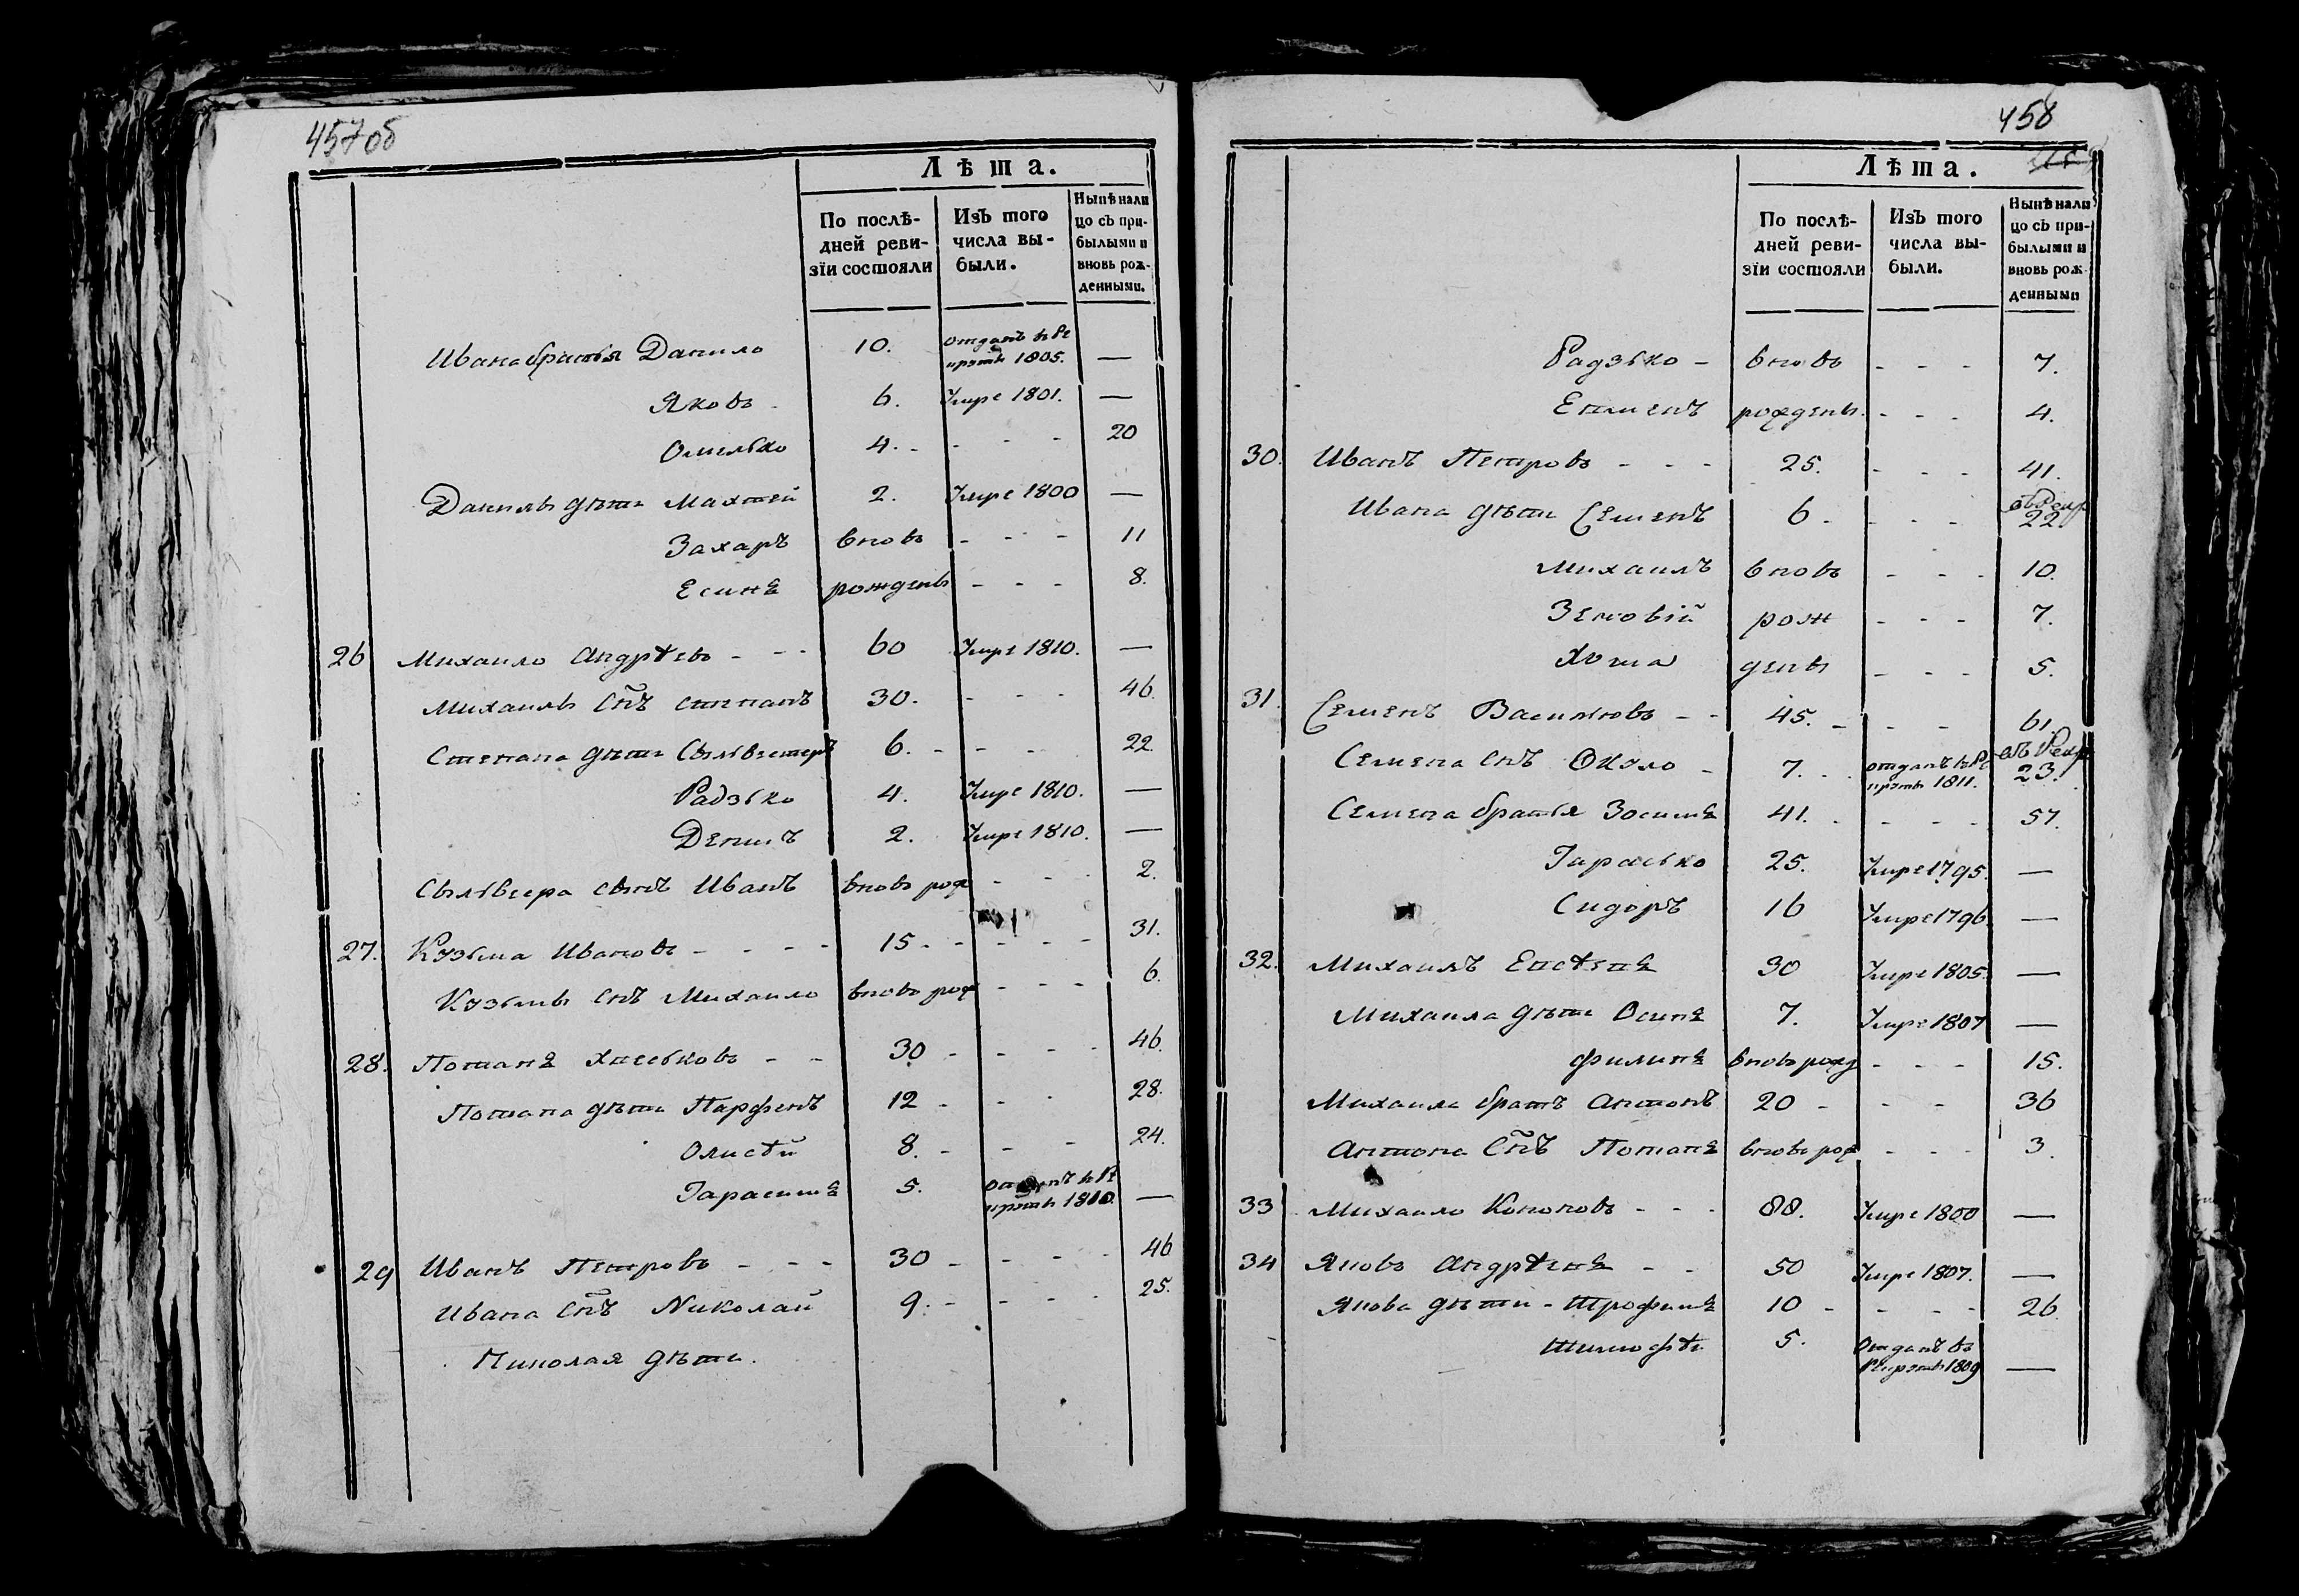 457об
Лѣта.
По послѣ-
дней реви-
зїи состояли
Изъ того
числа вы-
были.
Нынѣ нали
цо съ при-
былыми и
вновь рож-
денными.
Ивана братья Данило 10. отданъ в ре
круты 1805. —
Яковъ 6. Умре 1801. —
Омелько 4. - - - - 20
Данилы дѣти Махтей 2. Умре 1800 —
Захаръ вновь - - - 11
Есипъ рождены - - - 8.
26 Михайло Андрѣевъ - - - 60 Умре 1810. —
Михаилы снъ степанъ 30. - - - 46.
Степана дѣти Сылвестеръ 6. - - - 22.
Радзько 4. Умре 1810. —
Денисъ 2. Умре 1810. —
Сылвесера сынъ Иванъ вновь рож - - - 2.
27. Кузьма Ивановъ - - - - 15 - - - - - 31.
Кузьмы снъ Михайло вновь рож - - - 6.
28. Потапъ Хвеськовъ - - 30 - - - - 46.
Потапа дѣти Парфенъ 12 - - - 28.
Олисѣй 8. - - - 24.
Гарасимъ 5. отданъ в ре
круты 1810. —
29 Иванъ Петровъ - - - 30 - - - - 46
Ивана снъ Николай 9. - - - - 25.
Николая дѣти.
458
Лѣта.
По послѣ-
дней реви-
зїи состояли
Изъ того
числа вы-
были.
Нынѣ нали
цо съ при-
былыми и
вновь рож-
денными
Радзько - вновь - - - 7.
Епименъ рождены. - - - 4.
30. Иванъ Петровъ - - - 25. - - - 41.
Ивана дѣти Семенъ 6. - - - 22.
Михаилъ вновь - - - 10.
Зеновій рож - - - 7.
Хома дены - - - 5.
31. Семенъ Васильковъ - - 45. - - - 61
Семена снъ - 7. - - отданъ в ре
круты 1811. 23.
Семена братья Зосимъ 41. - - - - 57.
Гарасько 25. Умре 1795. —
Сидоръ 16 Умре 1796. —
32. Михаилъ 30 Умре 1805. —
Михаила дѣти Осипъ 7. Умре 1807 —
филипъ вновь рожд - - - 15.
Михаила братъ Антонъ 20 - - - 36
Антона снъ Потапъ вновь рож - - - 3.
33 Михайло Кононовъ - - - 88. Умре 1800 —
34 Яковъ - - 50 Умре 1807. —
Якова дѣти - Трофимъ 10 - - - - 26.
Тимофѣй 5. Отданъ въ
рекруты 1809 —